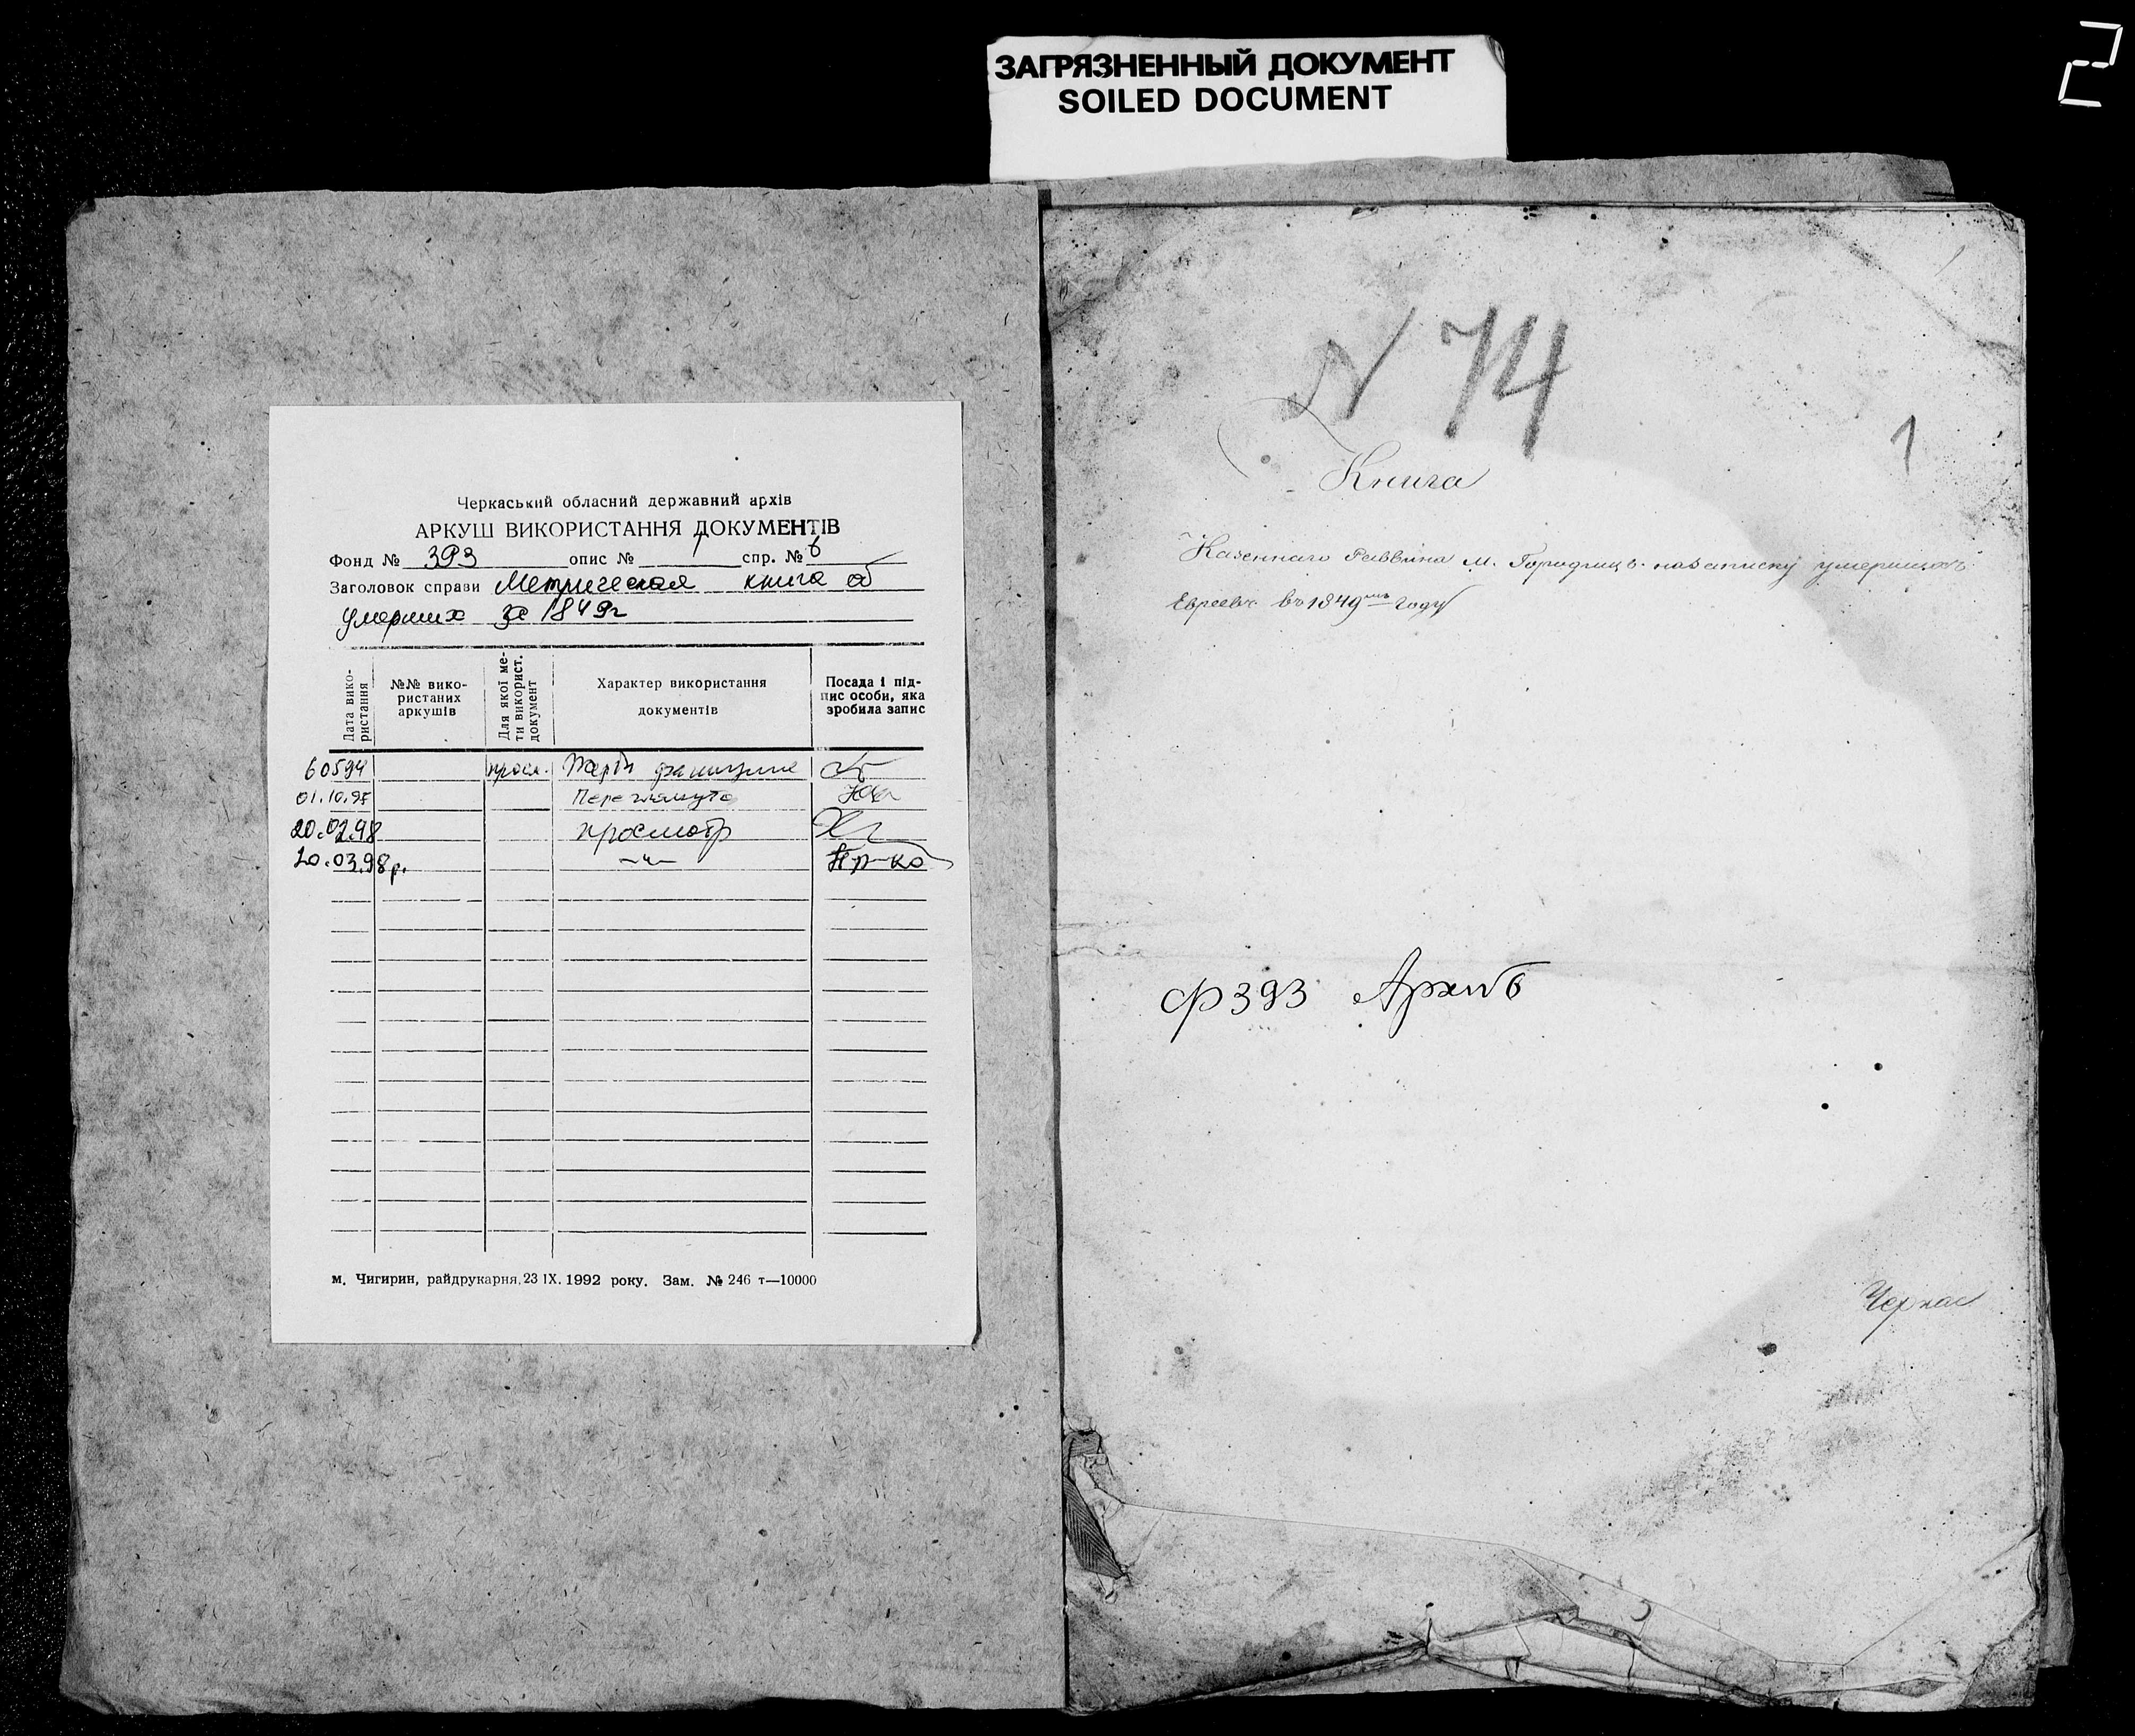 ЗАГРЯЗНЕННЫЙ ДОКУМЕНТ
SOILED DOCUMENT
2
Черкаський обласний державний архів
АРКУШ ВИКОРИСТАННЯ ДОКУМЕНТІВ
Фонд № 393 опис № 1 спр. № 6
Заголовок справи Метрическая книга об
умерших за 1849г
Дата вико-
ристання
№№ вико-
ристаних
аркушів
Для якої ме-
ти використ.
документ
Характер використання
документів
Посада і під-
пис особи, яка
зробила запис
60594
01.10.97
20.02.98 просмотр
20.03.98р. —"—
м. Чигирин, райдрукарня, 23 IX. 1992 року. Зам. № 246 т—10000
1
N 74
1
Книга
Казеннаго Раввина м. Городищъ
Евреевъ въ 1849мъ году
ф 393 Архив
Черкас